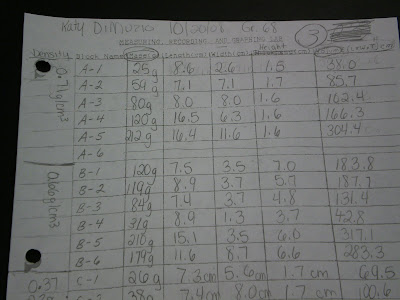 Katy DiMuzio 10/20/08 Gr. 68
MEASURING, RECORDING, AND GRAPHING LAB
3
Density Block Name Material Length(cm) Width(cm) Height
A-1 25g 8.6 2.6 1.5 38.0
A-2 59g 7.1 7.1 1.7 85.7
A-3 80g 8.0 8.0 1.6 162.4
A-4 120g 16.5 6.3 1.6 166.3
A-5 212g 16.4 11.6 1.6 304.4
A-6
0.71g/cm3
B-1 120g 7.5 3.5 7.0 183.8
B-2 119g 8.9 3.7 5.7 187.7
B-3 84g 7.4 3.7 4.8 131.4
B-4 31g 8.9 1.3 3.7 42.8
B-5 210g 15.1 3.5 6.0 317.1
B-6 179g 11.6 8.7 6.6 283.3
0.66g/cm3
0.37 C-1 26g 7.3cm 5.6cm 1.7cm 69.5
38g 7.4cm 8.0cm 1.7cm 100.6